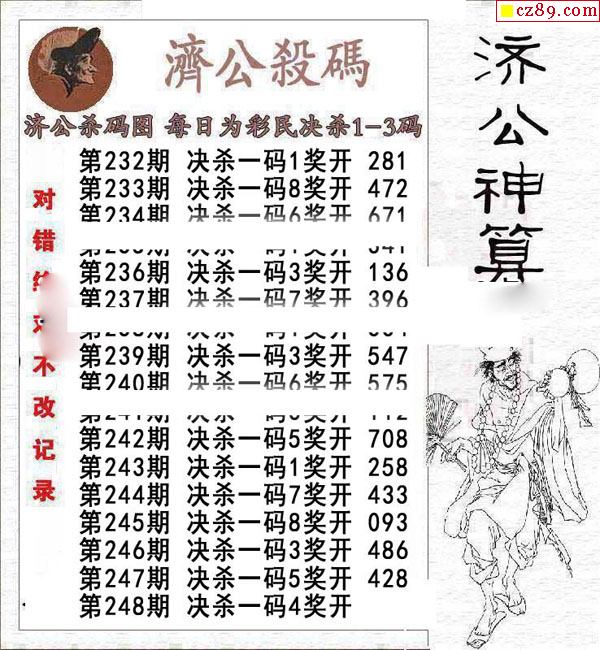 cz89.com
濟公殺碼
济公杀码图 每日为彩民决杀1-3码
第232期 决杀一码1奖开 281
第233期 决杀一码8奖开 472
第234期 决杀一码6奖开 671
第236期 决杀一码3奖开 136
第237期 决杀一码7奖开 396
第239期 决杀一码3奖开 547
第240期 决杀一码6奖开 575
第242期 决杀一码5奖开 708
第243期 决杀一码1奖开 258
第244期 决杀一码7奖开 433
第245期 决杀一码8奖开 093
第246期 决杀一码3奖开 486
第247期 决杀一码5奖开 428
第248期 决杀一码4奖开
对错 不改记录
济公神算